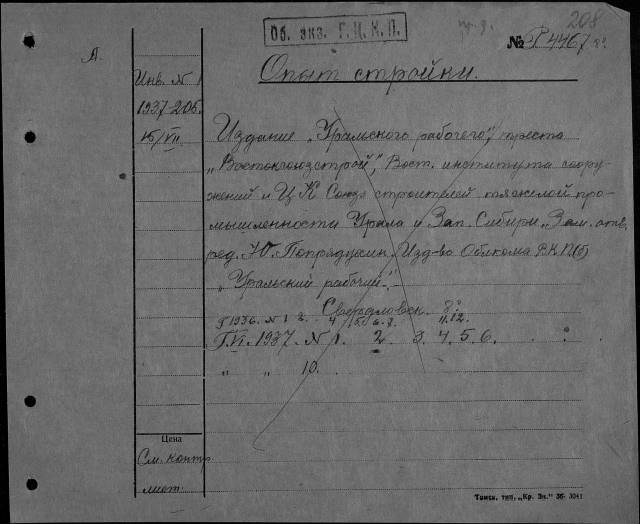 208
Об. экз. Г.Ц.К.П.
№ Р4467 8°
А.
Опыт стройки.
Инв. № 1
1937-206.
15/VII
Издание „Уральского рабочего”, треста
„Востоксоюзстрой”, Вост. института соору-
жений и ЦК Союза строителей тяжелой про-
мышленности Урала и Зап. Сибири. Зам. отв.
ред. Ю. Попрядухин. Изд-во Обкома ВКП(б)
„Уральский рабочий”.
Свердловск. 8°
Г 1936. № 1 2. 4 5. 6. 7. 11. 12.
Г. VI. 1937. № 1. 2. 3. 4. 5. 6.
„ „ 10.
Цена
См. контр.
лист.
Томск, тип. „Кр. Зн.” 36- 3041